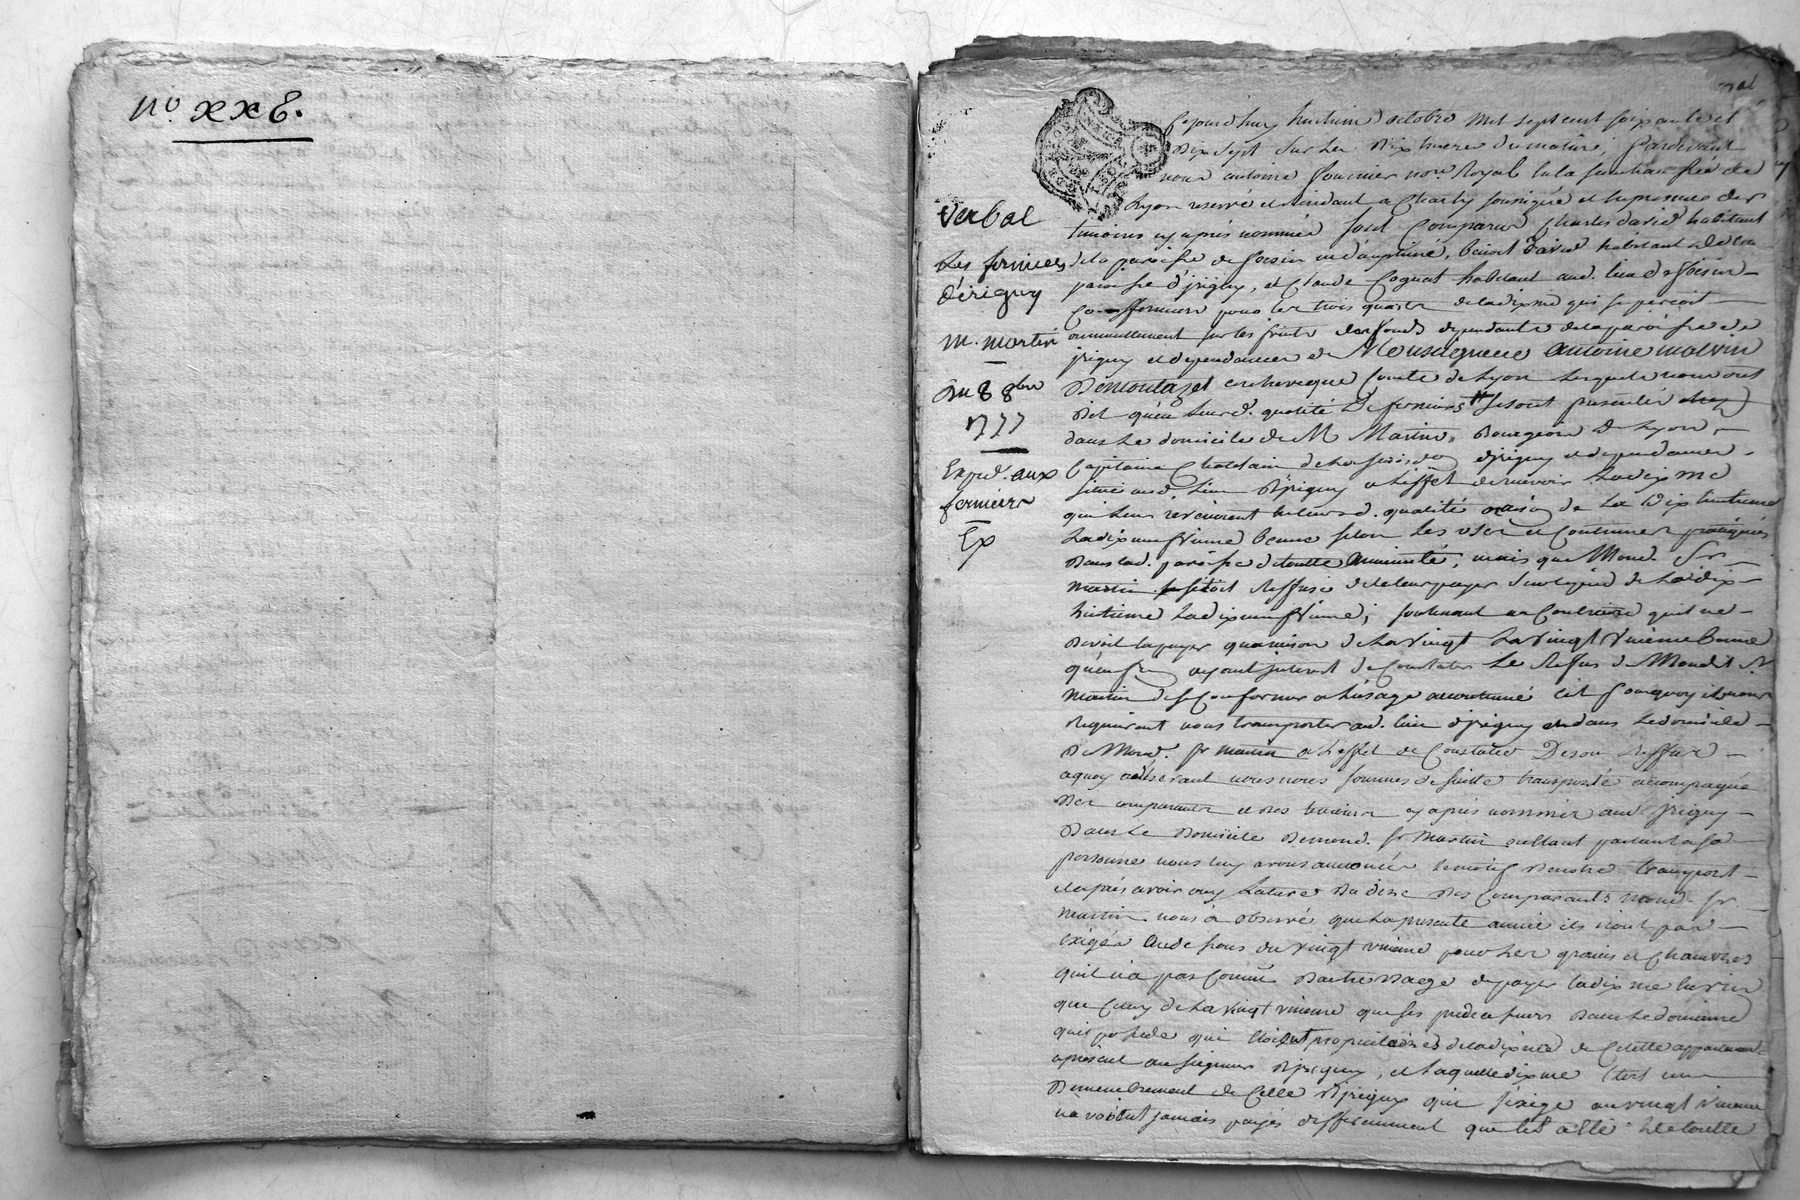 No. XXE.
Verbal
Les fermiers
d'érigny
M. martin
Du 8 8bre
1777
Exped. aux
fermiers
Ex
Cejourd'huy huitieme octobre mil sept cent soixante et
dix sept sur les dix heures du matin, pardevant
nous antoine fournier nore. Royal en la senechaussée de
Lyon reservé et residant a Charly soussigné et en presence des
temoins cy après nommés sont comparus Charles david habitant
de la paroisse de en dauphiné, benoit david habitant de la
paroisse d'jrigny, et Claude Coquat habitant aud. lieu de
Co-fermiers pour les trois quarts de la dixme qui se percoit
annuellement sur les fruits des fonds dependants de la paroisse de
jrigny et dependances de Monseigneur antoine malvin
De montazet archeveque Comte de Lyon lesquels nous ont
dit qu'en leurd. qualité de fermiers se sont presentés chez
dans le domicile de M. Martin, Bourgeois de Lyon,
Capitaine Chatelain de la d'jrigny et dependances
situé aud. lieu d'jrigny a l'effet de recevoir la dixme
qui leur revenoient en leurd. qualité a raison de la dix huitieme
la dix neufvieme benne selon les us et Coutumes pratiqués
dans lad. paroisse de toutte ancienneté, mais que Mond. Sr.
martin se seroit reffusé de la leur payer sur le pied de la dix
huitieme la dix neufvieme; soutenant au Contraire qu'il ne
devoit la payer qu'a raison de la vingt la vingt unieme benne
qu'en fin ayant interet de Constater le reffus de Mondit Sr
martin de se Conformer a l'usage accoutumé c'est pourquoy ils nous
requierent nous transporter aud. lieu d'jrigny et dans le domicile
de Mond. Sr martin a l'effet de Constater de son reffus
a quoy adherant nous nous sommes de suitte transporté accompagné
des comparants et des temoins cy après nommés aud. jrigny
dans le domicile de mond. Sr martin ou etant parlant a sa
personne nous luy avons annoncé le motif de notre transport
et après avoir ouy lecture du dire des Comparants mond. Sr.
martin nous a observé que la presente année ils n'ont pas
exigés au dessous du vingt unieme pour les grains et chanvres
qu'il n'a pas Connu d'autre usage de payer la dixme en vin
que Celuy de la vingt unieme que ses predecesseurs dans le domaine
qu'il possede qui etoient propriétaires de la dixme de Celette appartenant
a présent au seigneur d'jrigny, et laquelle dixme etoit un
demembrement de Celle d'jrigny qui s'éxige au vingt unieme
n'avoient jamais payés differemment que tel a été de toutte